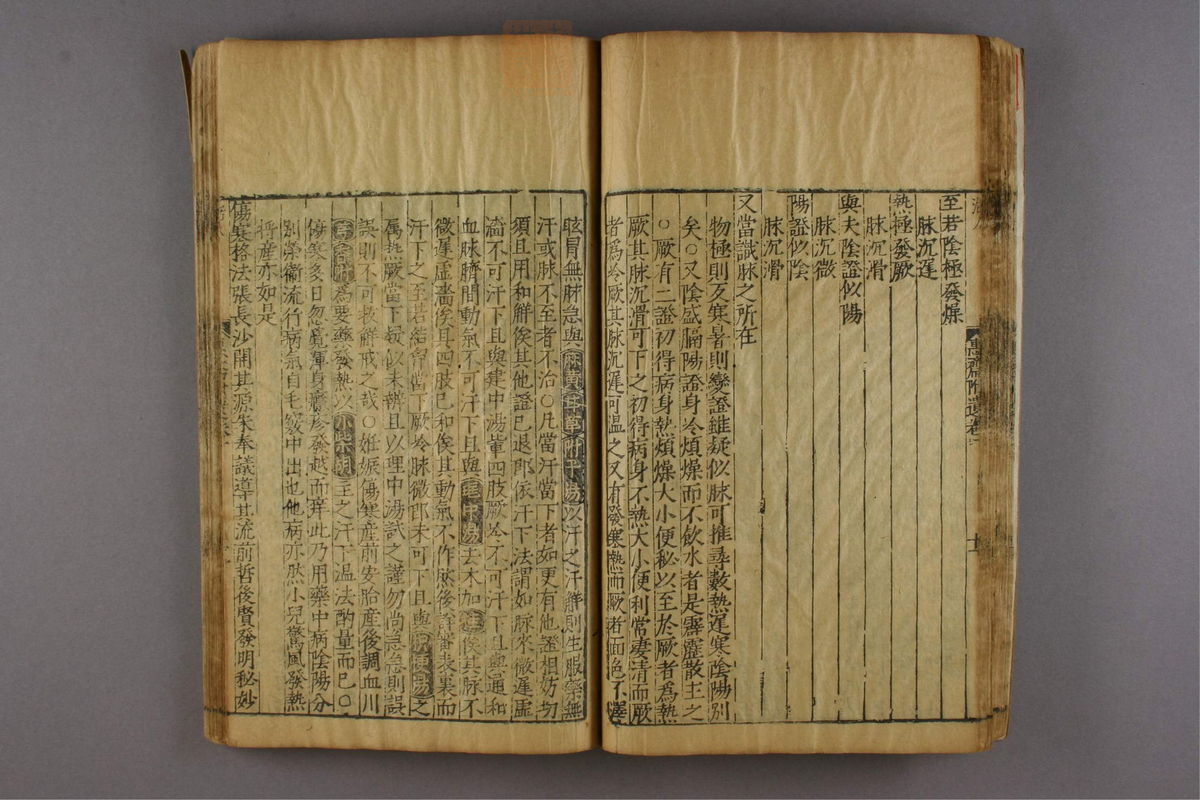 至若陰極發燥
脉沉遲
熱極發厥
脉沉滑
與夫陰證似陽
脉沉微
陽證似陰
脉沉滑
又當識脉之所在
物極則反寒暑則變證雖疑似脉可推尋數熱遲寒陰陽別
矣○又陰盛膈陽證身冷煩燥而不飲水者是霹靂散主之
○厥有二證初得病身熱煩燥大小便秘以至於厥者爲熱
厥其脉沉滑可下之初得病身不熱大小便利常凄清而厥
者爲冷厥其脉沉遲可温之又有發寒熱而厥者面色不澤
眩冒無脉急與麻黄甘草附子湯以汗之汗觧則生服藥無
汗或脉不至者不治○凡當汗當下者如更有他證相妨切
須且用和觧俟其他證已退郎依汗下法謂如脉來微遲虛
濇不可汗下且與建中湯軰四肢厥冷不可汗下且與通和
血脉臍間動氣不可汗下且與理中湯去木加俟其脉不
微遲虛濇俟耳四肢已和俟其動氣不作然後詳審表裏而
汗下之至若結胷當下厥冷脉微郎未可下且與之
属熱厥當下疑似未辨且以理中湯試之謹勿尚急急則誤
誤則不可救觧戒之哉○姙娠傷寒産前安胎産後調血川
芎當歸爲要藥發熱以小柴胡主之汗下温法酌量而已○
傷寒多日忽覺渾身癮疹發越而痒此乃用藥中病陰陽分
別榮衛流行病氣自毛竅中出也他病亦然小兒驚風發熱
將産亦如是
傷寒格法張長沙開其源朱奉議導其流前哲後賢發明秘妙